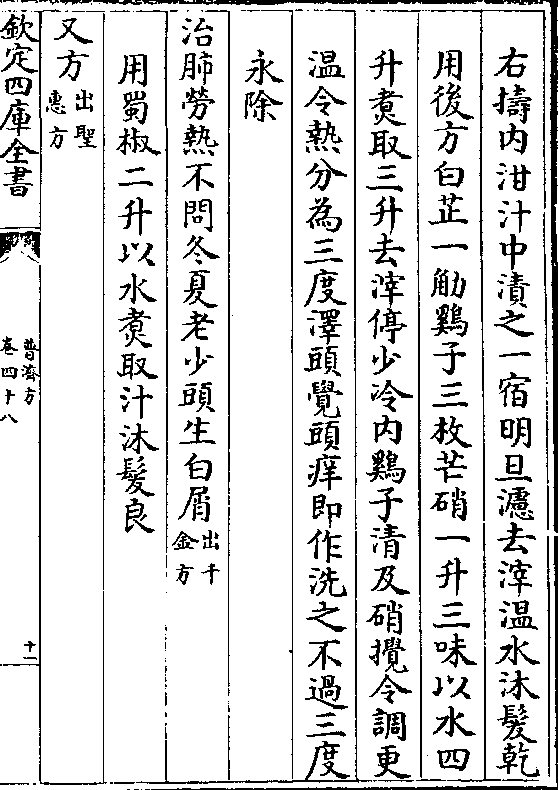 右擣内泔汁中漬之一宿明旦濾去滓温水沐髮乾
用後方白芷一觔鷄子三枚芒硝一升三味以水四
升煑取三升去滓停少冷内鷄子清及硝攪令調更
温令熱分為三度澤頭覺頭痒即作洗之不過三度
永除
治肺勞熱不問冬夏老少頭生白屑出千金方
用蜀椒二升以水煑取汁沐髮良
又方出聖惠方
欽定四庫全書
普濟方
卷四十八
十一